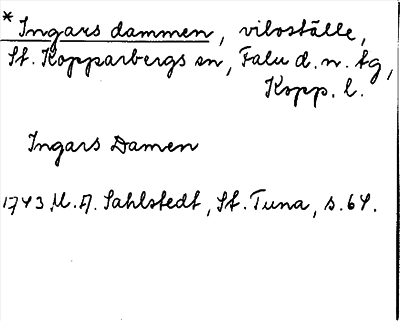 * Ingars dammen, viloställe,
St. Kopparbergs sn, Falu d. n. tg,
Kopp. l.
Ingars Damen
1743 M. A. Sahlstedt, St. Tuna, s. 64.